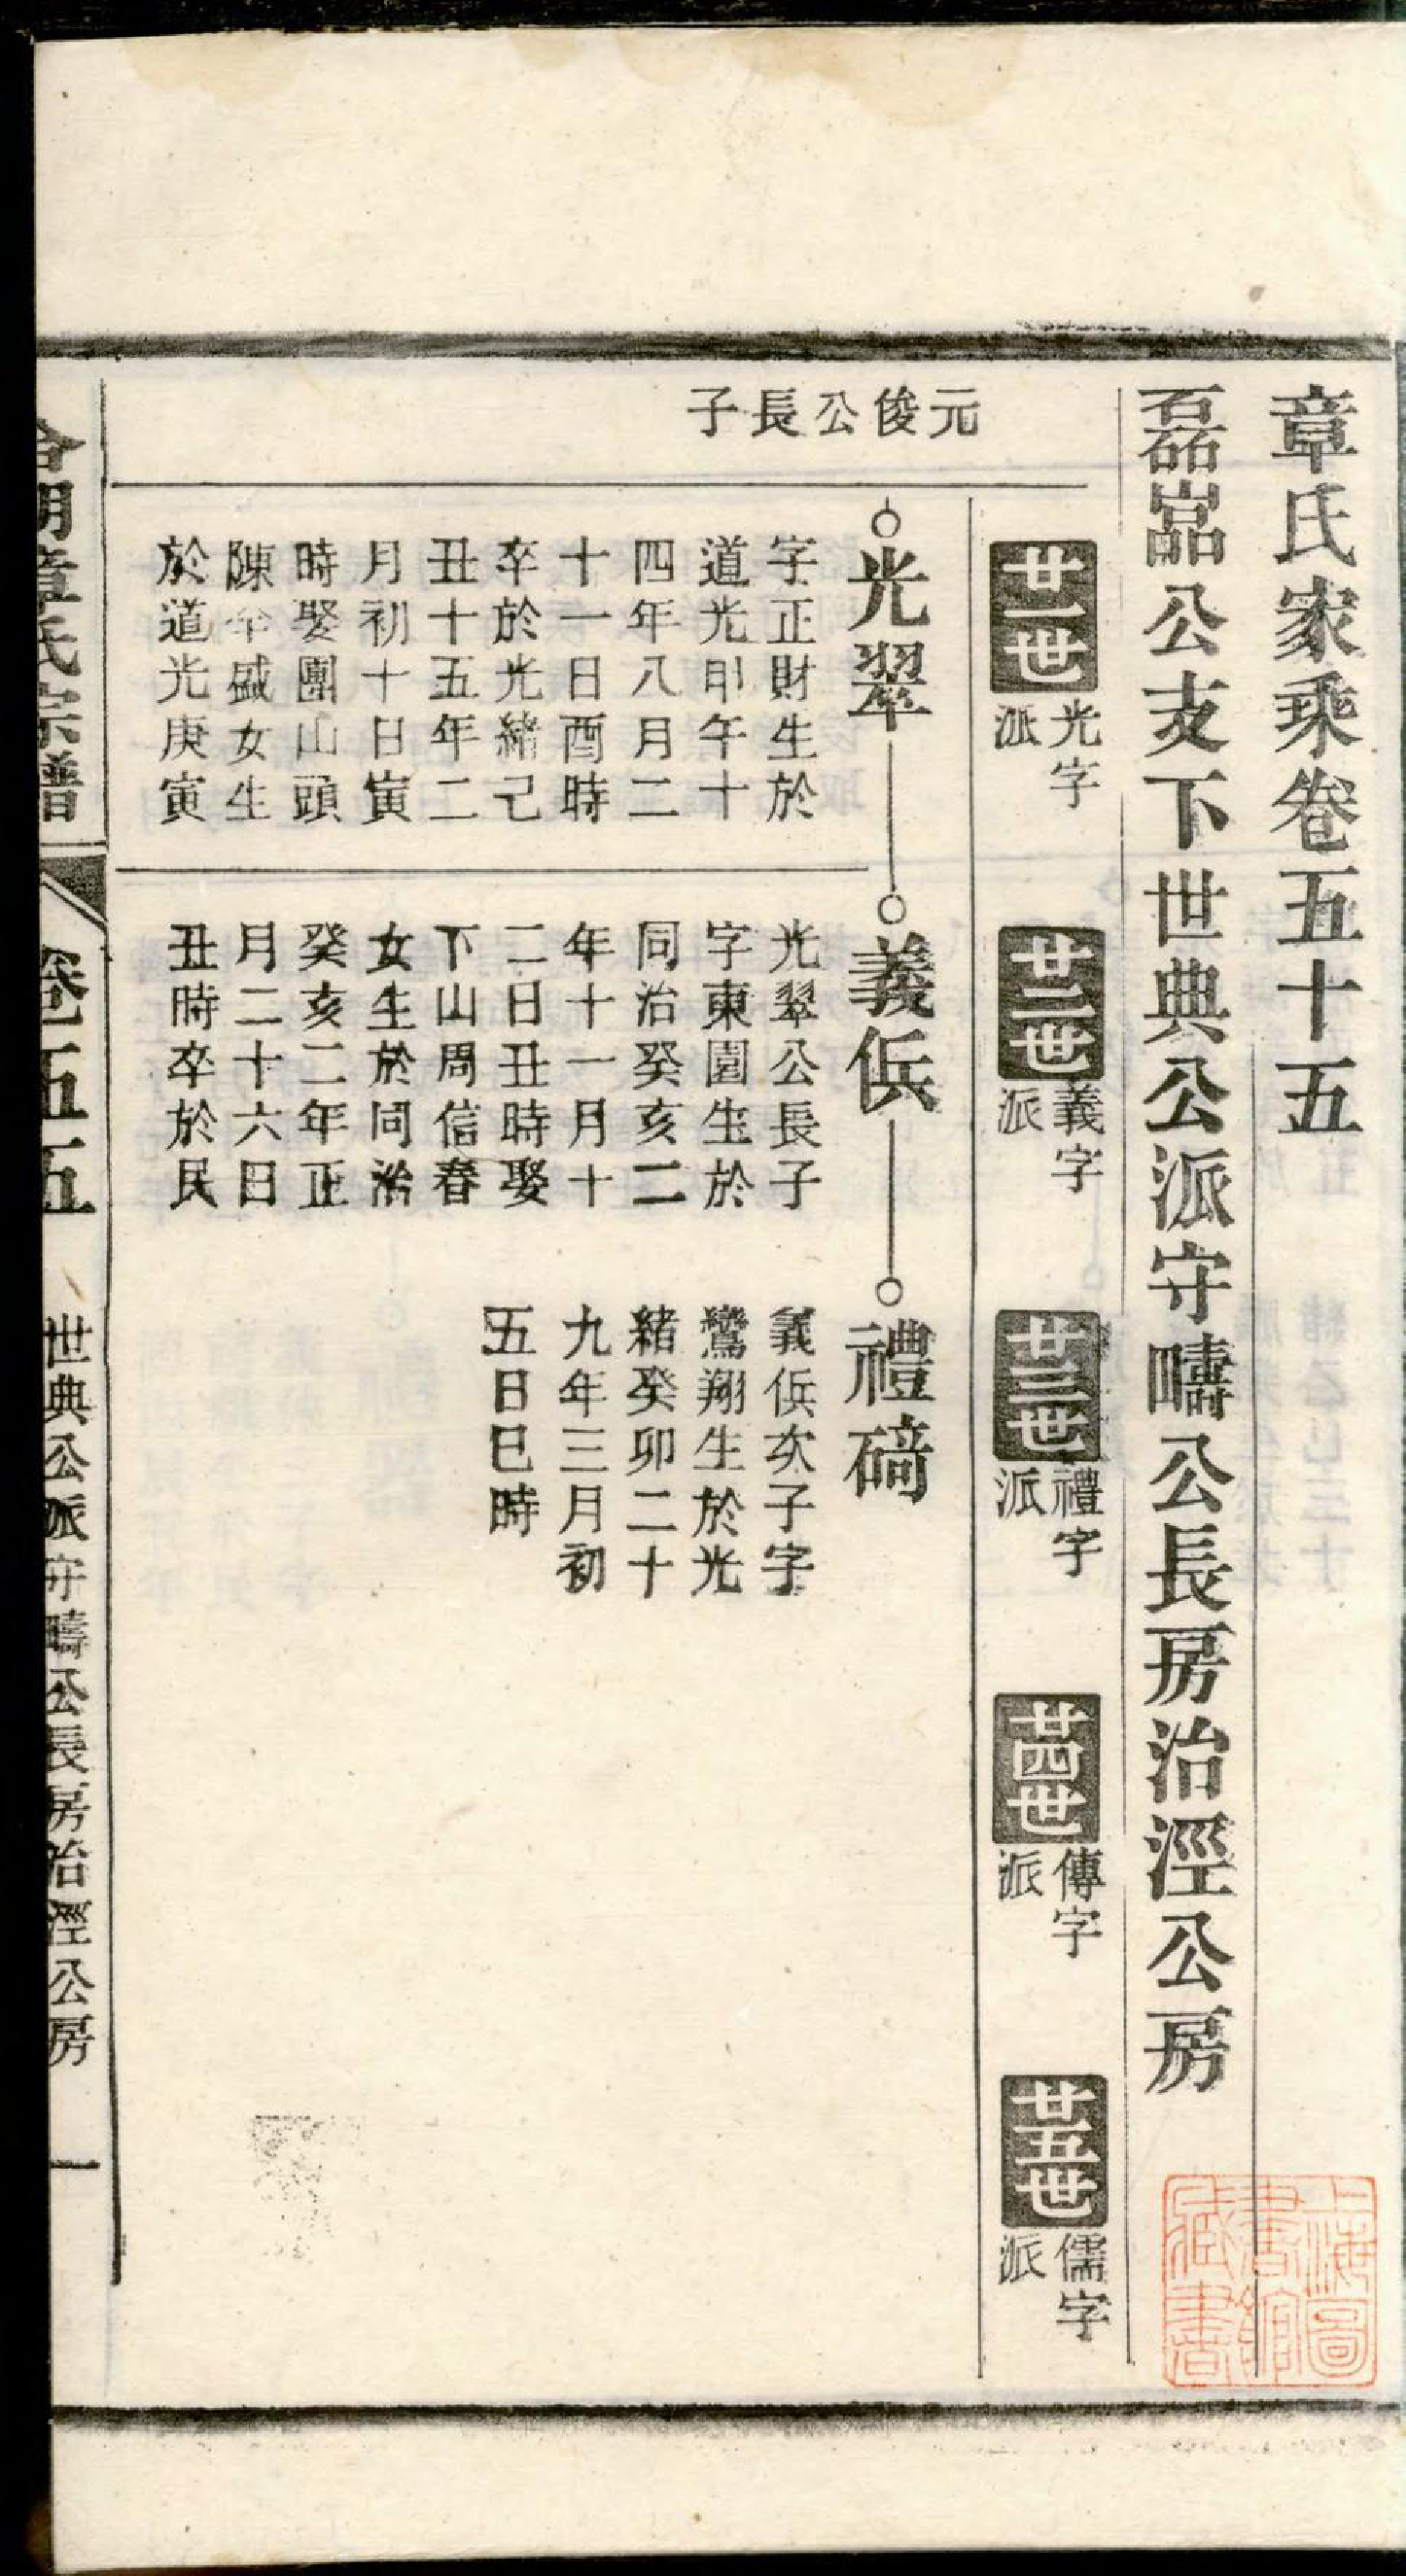 章氏家乘卷五十五
磊嵓公支下世典公派守疇公長房治涇公房
廿一世
光字
派
廿二世
義字
派
廿三世
禮字
派
廿四世
傳字
派
廿五世
儒字
派
元俊公長子
光翠
字正財生於
道光甲午十
四年八月二
十一日酉時
卒於光緒己
丑十五年二
月初十日寅
時娶團山頭
陳 盛女生
於道光庚寅
義兵
光翠公長子
字東園生於
同治癸亥二
年十一月十
二日丑時娶
下山周信春
女生於同治
癸亥二年正
月二十六日
丑時卒於民
禮碕
義兵次子字
鸞翔生於光
緒癸卯二十
九年三月初
五日巳時
章氏宗譜
卷五五
世典公派守疇公長房治涇公房
一
上海圖書館藏書